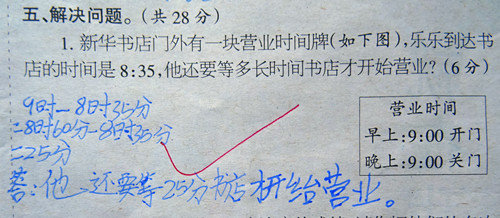 五、解决问题。(共28分)
1. 新华书店门外有一块营业时间牌(如下图),乐乐到达书
店的时间是8:35,他还要等多长时间书店才开始营业?(6分)
9时-8时35分
=8时60分-8时35分
=25分
答:他还要等25分书店才开始营业。
营业时间
早上:9:00 开门
晚上:9:00 关门